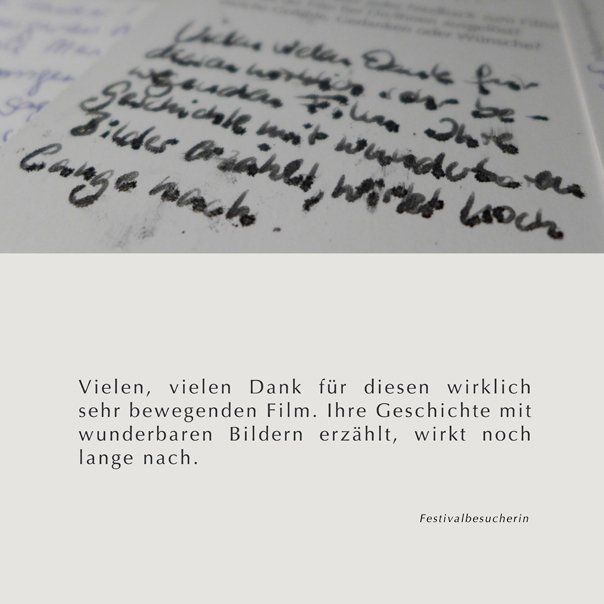 Gedanken oder Wünsche!
Vielen vielen Dank für
diesen wirklich sehr be-
wegenden Film. Ihre
Geschichte mit wunderbaren
Bilder erzählt, wirkt noch
lange nach.
Vielen, vielen Dank für diesen wirklich
sehr bewegenden Film. Ihre Geschichte mit
wunderbaren Bildern erzählt, wirkt noch
lange nach.
Festivalbesucherin